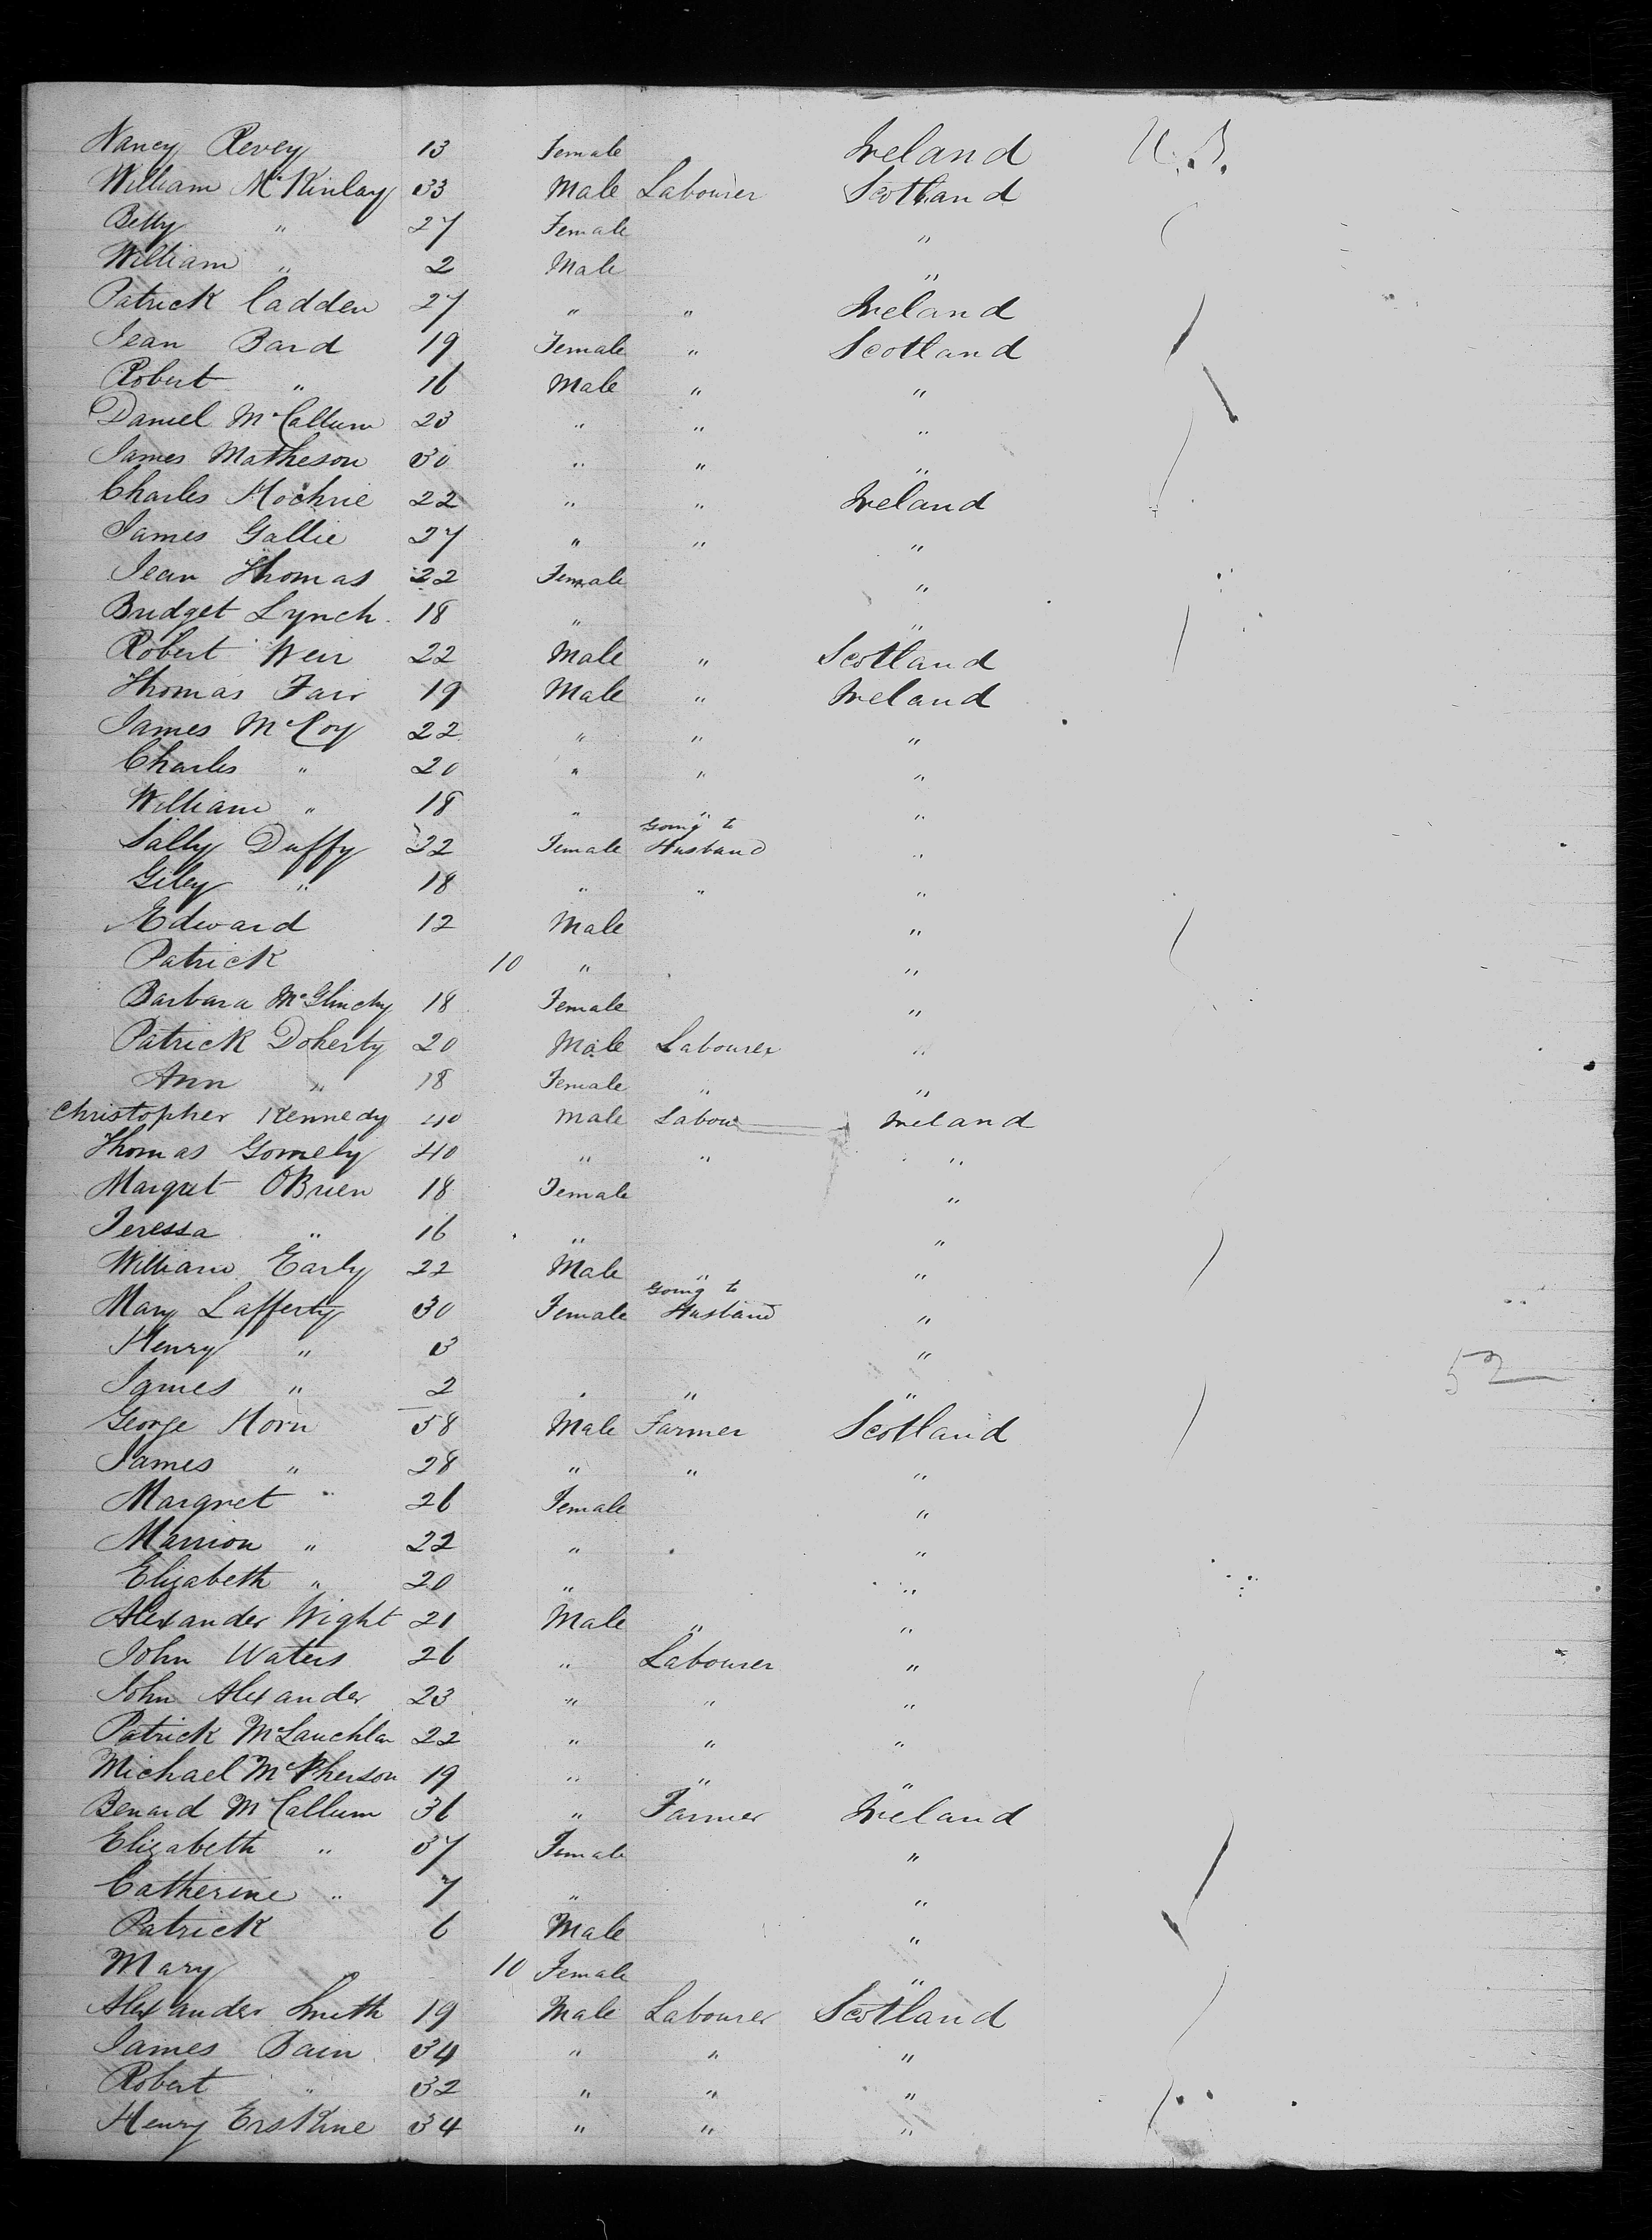 Nancy Revey 13 Female Ireland U.S.
William McKinlay 33 Male Labourer Scotland
Betty " 27 Female "
William " 2 Male "
Patrick Cadden 27 " " Ireland
Jean Bard 19 Female " Scotland
Robert " 16 Male " "
Daniel McCallum 23 " " "
James Matheson 30 " " "
Charles Mochrie 22 " " Ireland
James Gallie 27 " " "
Jean Thomas 22 Female "
Bridget Lynch 18 " "
Robert Weir 22 Male " Scotland
Thomas Fair 19 Male " Ireland
James McCoy 22 " " "
Charles " 20 " " "
William " 18 " " "
Sally Duffy 22 Female Going to Husband "
Giley " 18 " " "
Edward 12 Male "
Patrick 10 " "
Barbara McGlinchy 18 Female "
Patrick Doherty 20 Male Labourer "
Ann " 18 Female " "
Christopher Kennedy 40 Male Labour Ireland
Thomas Gormely 40 " " "
Margret OBrien 18 Female "
Teressa " 16 " "
William Early 22 Male " "
Mary Lafferty 30 Female Going to Husband "
Henry " 3 "
James " 2 " "
52
George Horn 58 Male Farmer Scotland
James " 28 " " "
Margret " 26 Female "
Marrion " 22 " "
Elizabeth " 20 " "
Alexander Wight 21 Male " "
John Waters 26 " Labourer "
John Alexander 23 " " "
Patrick McLauchlan 22 " " "
Michael McPherson 19 " " "
Benard McCallum 36 " Farmer Ireland
Elizabeth " 37 Female "
Catherine " 7 " "
Patrick 6 Male "
Mary 10 Female "
Alexander Smith 19 Male Labourer Scotland
James Bain 34 " " "
Robert " 32 " " "
Henry Erskine 34 " " "